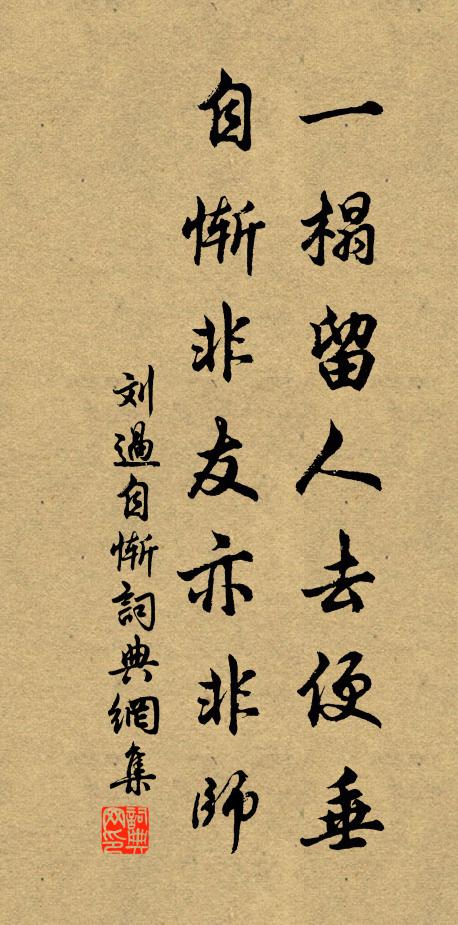 一榻留人去便垂
自惭非友亦非師
刘過自惭詞典網集
詞典网印